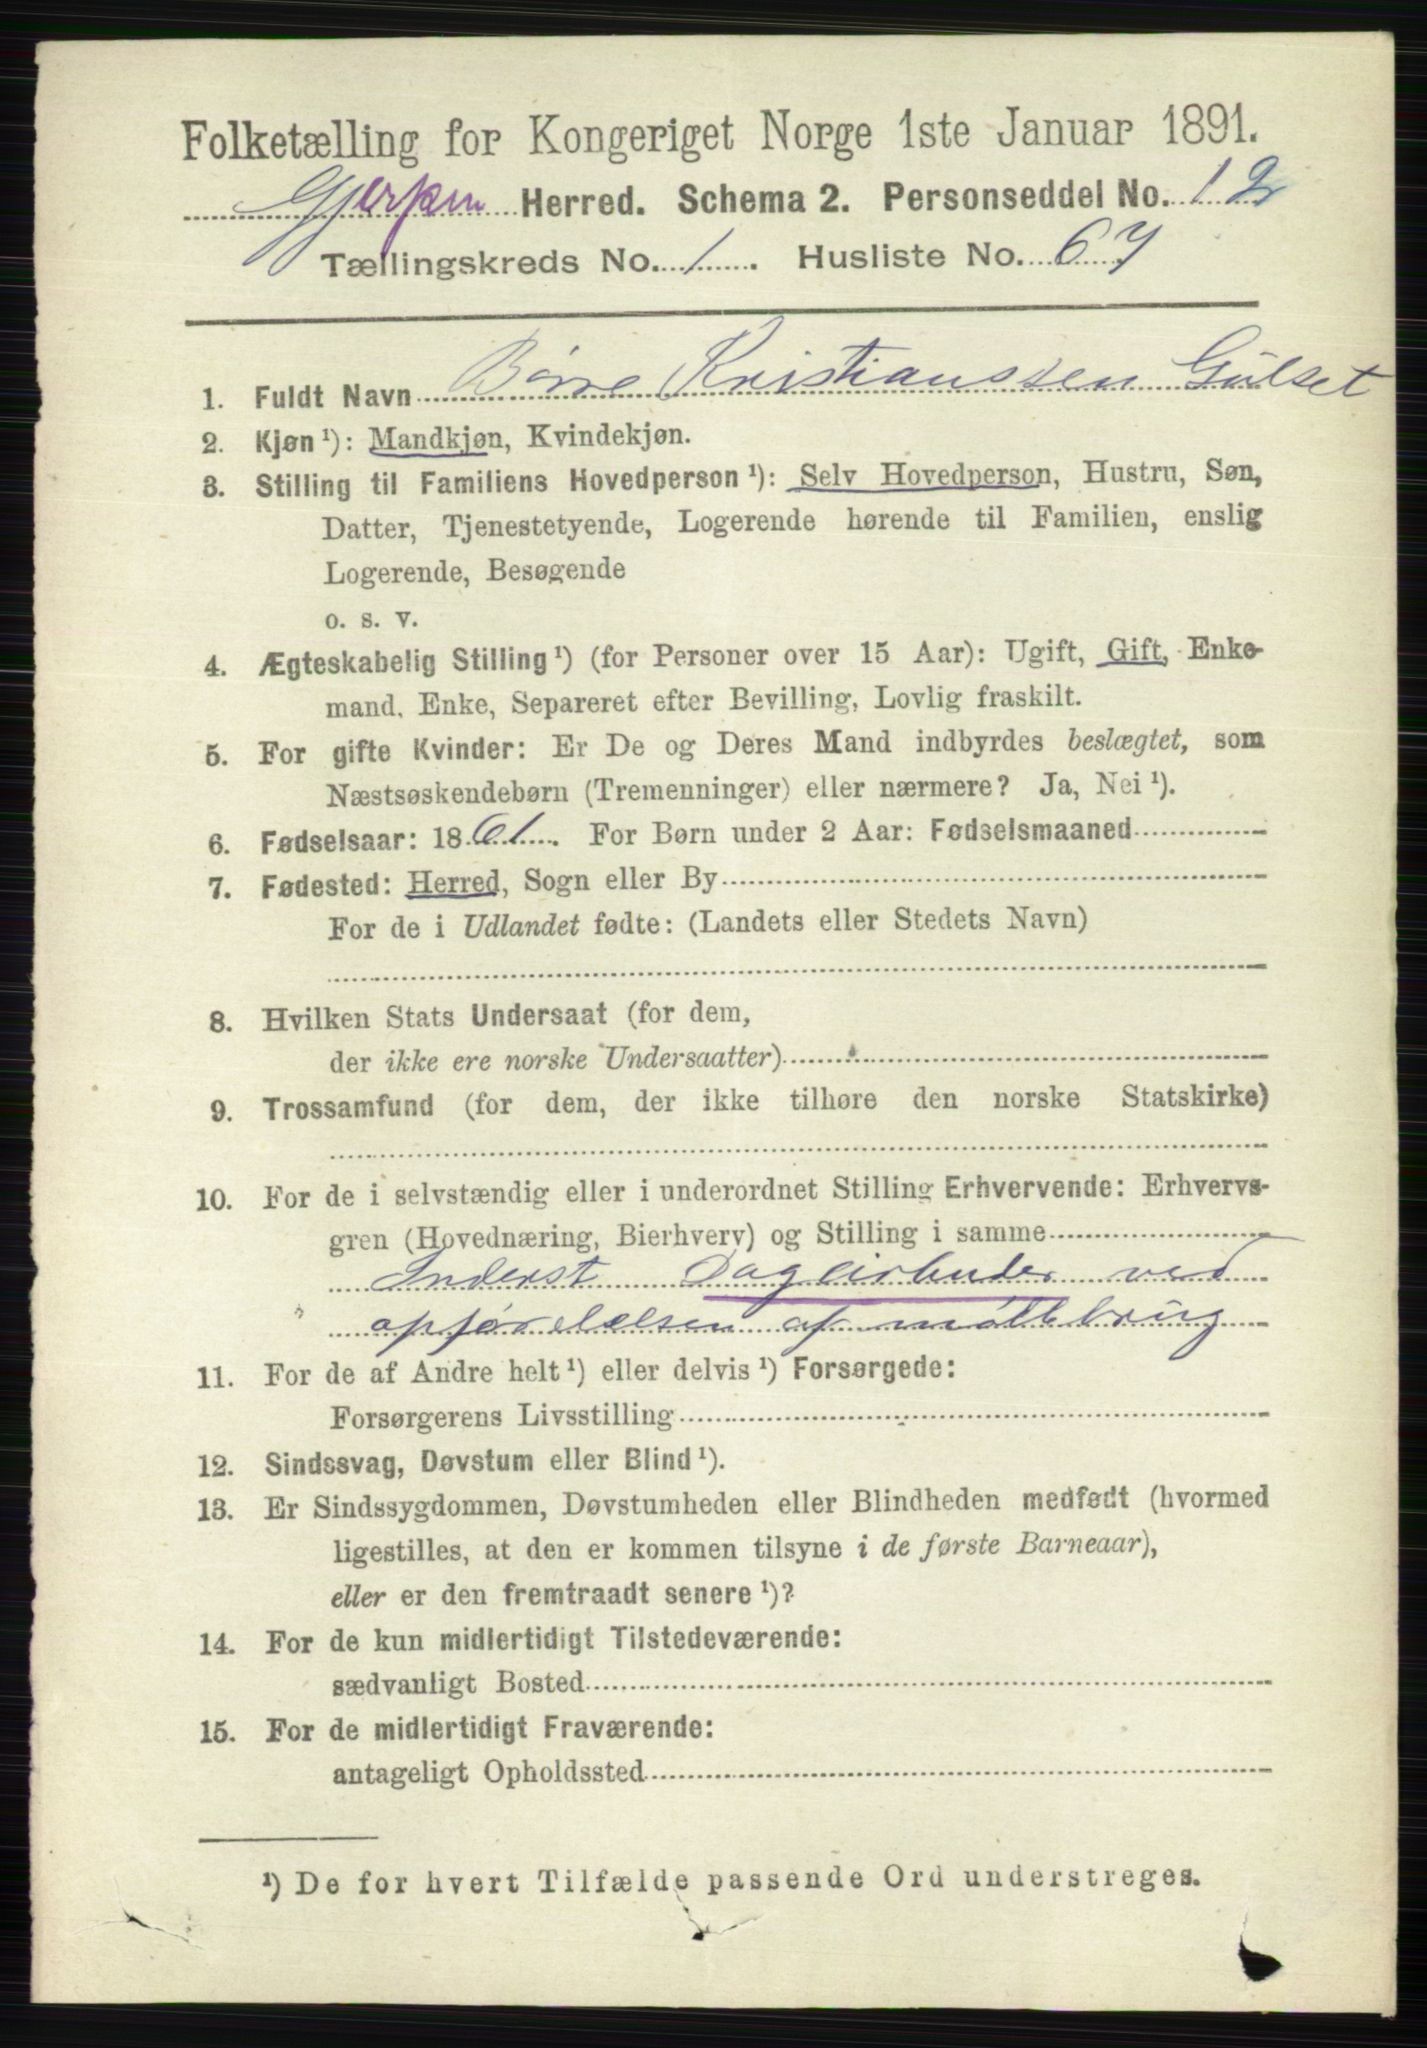 Folketælling for Kongeriget Norge 1ste Januar 1891.
Gjerpen Herred. Schema 2. Personseddel No. 12
Tællingskreds No. 1. Husliste No. 67
1. Fuldt Navn Børre Kristianssen Gulset
2. Kjøn ¹): Mandkjøn, Kvindekjøn.
3. Stilling til Familiens Hovedperson ¹): Selv Hovedperson, Hustru, Søn,
Datter, Tjenestetyende, Logerende hørende til Familien, enslig
Logerende, Besøgende
o. s. v.
4. Ægteskabelig Stilling ¹) (for Personer over 15 Aar): Ugift, Gift, Enke-
mand, Enke, Separeret efter Bevilling, Lovlig fraskilt.
5. For gifte Kvinder: Er De og Deres Mand indbyrdes beslægtet, som
Næstsøskendebørn (Tremenninger) eller nærmere? Ja, Nei ¹).
6. Fødselsaar: 1861. For Børn under 2 Aar: Fødselsmaaned
7. Fødested: Herred, Sogn eller By
For de i Udlandet fødte: (Landets eller Stedets Navn)
8. Hvilken Stats Undersaat (for dem,
der ikke ere norske Undersaatter)
9. Trossamfund (for dem, der ikke tilhøre den norske Statskirke)
10. For de i selvstændig eller i underordnet Stilling Erhvervende: Erhvervs-
gren (Hovednæring, Bierhverv) og Stilling i samme
Inderst Dagarbeider ved
opførelelsen af
11. For de af Andre helt ¹) eller delvis ¹) Forsørgede:
Forsørgerens Livsstilling
12. Sindssvag, Døvstum eller Blind ¹).
13. Er Sindssygdommen, Døvstumheden eller Blindheden medfødt (hvormed
ligestilles, at den er kommen tilsyne i de første Barneaar),
eller er den fremtraadt senere ¹)?
14. For de kun midlertidigt Tilstedeværende:
sædvanligt Bosted
15. For de midlertidigt Fraværende:
antageligt Opholdssted
¹) De for hvert Tilfælde passende Ord understreges.